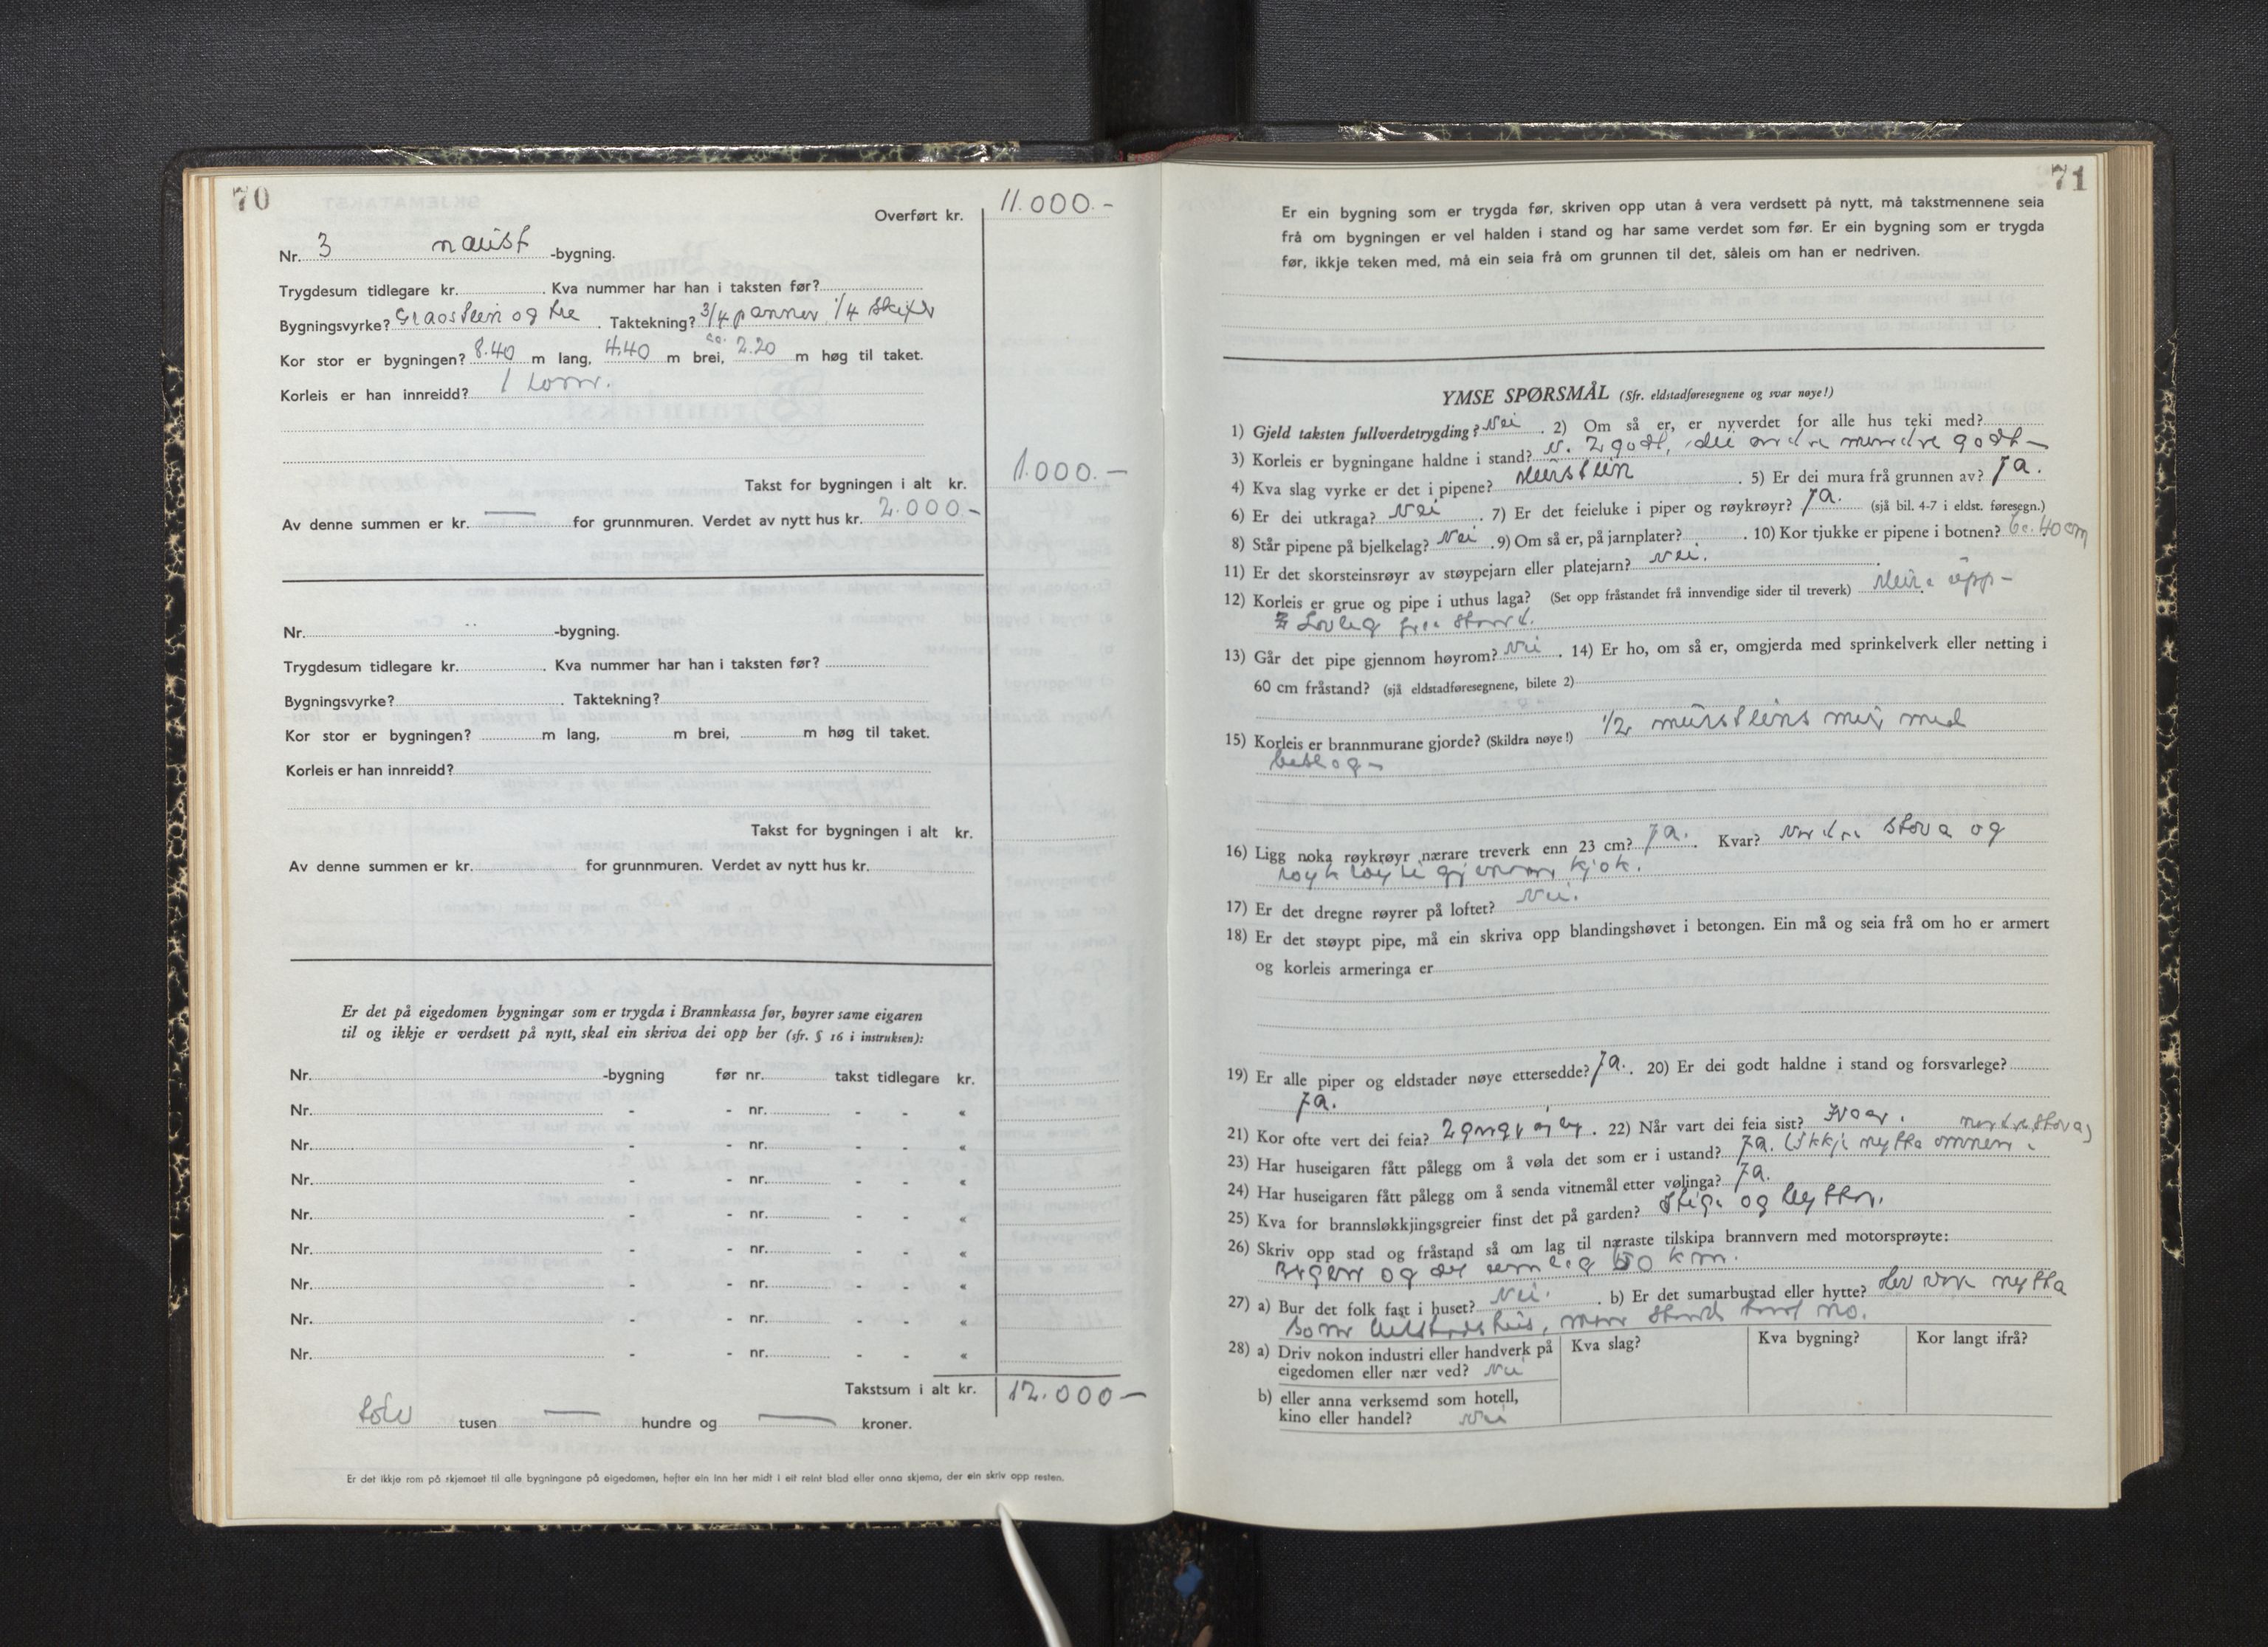 70
Overført kr. 11.000.-
Nr. 3 naust -bygning.
Trygdesum tidlegare kr. . Kva nummer har han i taksten før?
Bygningsvyrke? Graostein og tre . Taktekning? 3/4 panner 1/4 skifer
Kor stor er bygningen? 8.40 m lang, 4.40 m brei, ca. 2.20 m høg til taket.
Korleis er han innreidd? 1 rom.
Takst for bygningen i alt kr. 1.000.-
Av denne summen er kr. — for grunnmuren. Verdet av nytt hus kr. 2.000.-
Nr. -bygning.
Trygdesum tidlegare kr. . Kva nummer har han i taksten før?
Bygningsvyrke? . Taktekning?
Kor stor er bygningen? m lang, m brei, m høg til taket.
Korleis er han innreidd?
Takst for bygningen i alt kr.
Av denne summen er kr. for grunnmuren. Verdet av nytt hus kr.
Er det på eigedomen bygningar som er trygda i Brannkassa før, høyrer same eigaren
til og ikkje er verdsett på nytt, skal ein skriva dei opp her (sfr. § 16 i instruksen):
Nr. -bygning før nr. takst tidlegare kr.
Nr. - - nr. - - «
Nr. - - nr. - - «
Nr. - - nr. - - «
Nr. - - nr. - - «
Nr. - - nr. - - «
Nr. - - nr. - - «
Nr. - - nr. - - «
Nr. - - nr. - - «
Takstsum i alt kr. 12.000-
tolv tusen — hundre og — kroner.
Er det ikkje rom på skjemaet til alle bygningane på eigedomen, hefter ein inn her midt i eit reint blad eller anna skjema, der ein skriv opp resten.
71
Er ein bygning som er trygda før, skriven opp utan å vera verdsett på nytt, må takstmennene seia
frå om bygningen er vel halden i stand og har same verdet som før. Er ein bygning som er trygda
før, ikkje teken med, må ein seia frå om grunnen til det, såleis om han er nedriven.
YMSE SPØRSMÅL (Sfr. eldstadføresegnene og svar nøye!)
1) Gjeld taksten fullverdetrygding? Nei . 2) Om så er, er nyverdet for alle hus teki med?
3) Korleis er bygningane haldne i stand? N. 2 godt, dei andre mindre godt-
4) Kva slag vyrke er det i pipene? Murstein . 5) Er dei mura frå grunnen av? Ja.
6) Er dei utkraga? Nei . 7) Er det feieluke i piper og røykrøyr? Ja. (sjå bil. 4-7 i eldst. føresegn.)
8) Står pipene på bjelkelag? Nei . 9) Om så er, på jarnplater? . 10) Kor tjukke er pipene i botnen? ca. 40 cm
11) Er det skorsteinsrøyr av støypejarn eller platejarn? Nei.
12) Korleis er grue og pipe i uthus laga? (Set opp fråstandet frå innvendige sider til treverk) Mura opp-
Lovleg fråstand.
13) Går det pipe gjennom høyrom? Nei . 14) Er ho, om så er, omgjerda med sprinkelverk eller netting i
60 cm fråstand? (sjå eldstadføresegnene, bilete 2)
15) Korleis er brannmurane gjorde? (Skildra nøye!) 1/2 mursteins mur med
beslag-
16) Ligg noka røykrøyr nærare treverk enn 23 cm? Ja. Kvar? Nordre stova og
røykrøyre gjennom kjøk.
17) Er det dregne røyrer på loftet? Nei.
18) Er det støypt pipe, må ein skriva opp blandingshøvet i betongen. Ein må og seia frå om ho er armert
og korleis armeringa er
19) Er alle piper og eldstader nøye ettersedde? Ja. . 20) Er dei godt haldne i stand og forsvarlege?
Ja.
21) Kor ofte vert dei feia? 2 gang i . 22) Når vart dei feia sist? I vaar. nordre stova)
23) Har huseigaren fått pålegg om å vøla det som er i ustand? Ja. (Ikkje nytta omnen i
24) Har huseigaren fått pålegg om å senda vitnemål etter vølinga? Ja.
25) Kva for brannsløkkjingsgreier finst det på garden? Stige og bytter.
26) Skriv opp stad og fråstand så om lag til næraste tilskipa brannvern med motorsprøyte:
Bergen og der umleg 50 km.
27) a) Bur det folk fast i huset? Nei. . b) Er det sumarbustad eller hytte? Hev vore nytta
som bustadhus, men stend tomt no.
28) a) Driv nokon industri eller handverk på eigedomen eller nær ved? Nei
Kva slag? Kva bygning? Kor langt ifrå?
b) eller anna verksemd som hotell,
kino eller handel? Nei